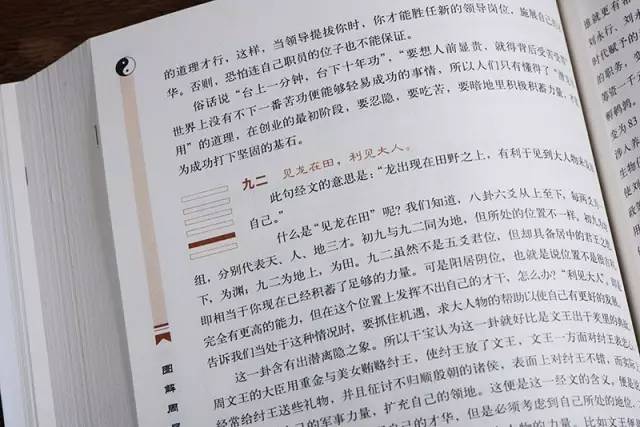 的道理才行，这样，当领导提拔你时，你才能胜任新的领导岗位，施展自己
华，否则，恐怕连自己职员的位子也不能保证。
俗话说“台上一分钟，台下十年功”，“要想人前显贵，就得背后受苦受
世界上没有不下一番苦功便能够轻易成功的事情，所以人们只有懂得了“潜龙
用”的道理，在创业的最初阶段，要忍隐，要吃苦，要暗地里积极积蓄力量，
为成功打下坚固的基石。
九二 见龙在田，利见大人。
此句经文的意思是：“龙出现在田野之上，有利于见到大人物来
自己。”
什么是“见龙在田”呢？我们知道，八卦六爻从上至下，每两爻
组，分别代表天、人、地三才。初九与九二同为地，但所处的位置不一样。初九为
下，为渊；九二为地上，为田。九二虽然不是五爻君位，但却具备居中的君王之
即相当于你现在已经积蓄了足够的力量。可是阳居阴位，也就是说位置不是很
完全有更高的能力，但在这个位置上发挥不出自己的才干，怎么办？“利见大人”，即是
告诉我们当处于这种情况时，要抓住机遇，求大人物的帮助以使自己有更好的发展。
这一卦含有出潜离隐之象。所以干宝认为这一卦就好比是文王出于羑里的
周文王的大臣用重金与美女贿赂纣王，使纣王放了文王，文王一方面对纣王
经常给纣王送些礼物，并且征讨不归顺殷朝的诸侯，表面上对纣王不错，而实际
自己的军事力量，扩充自己的领地。这便是这一经文的含义，便是
自己的才华，但是必须考虑到自己所处的地位。比如文王
图解周
谁就更有
刘永行、刘永
时代赋予的
的职务，变
筹资一千
变为 83
涉入养
生物
使刘